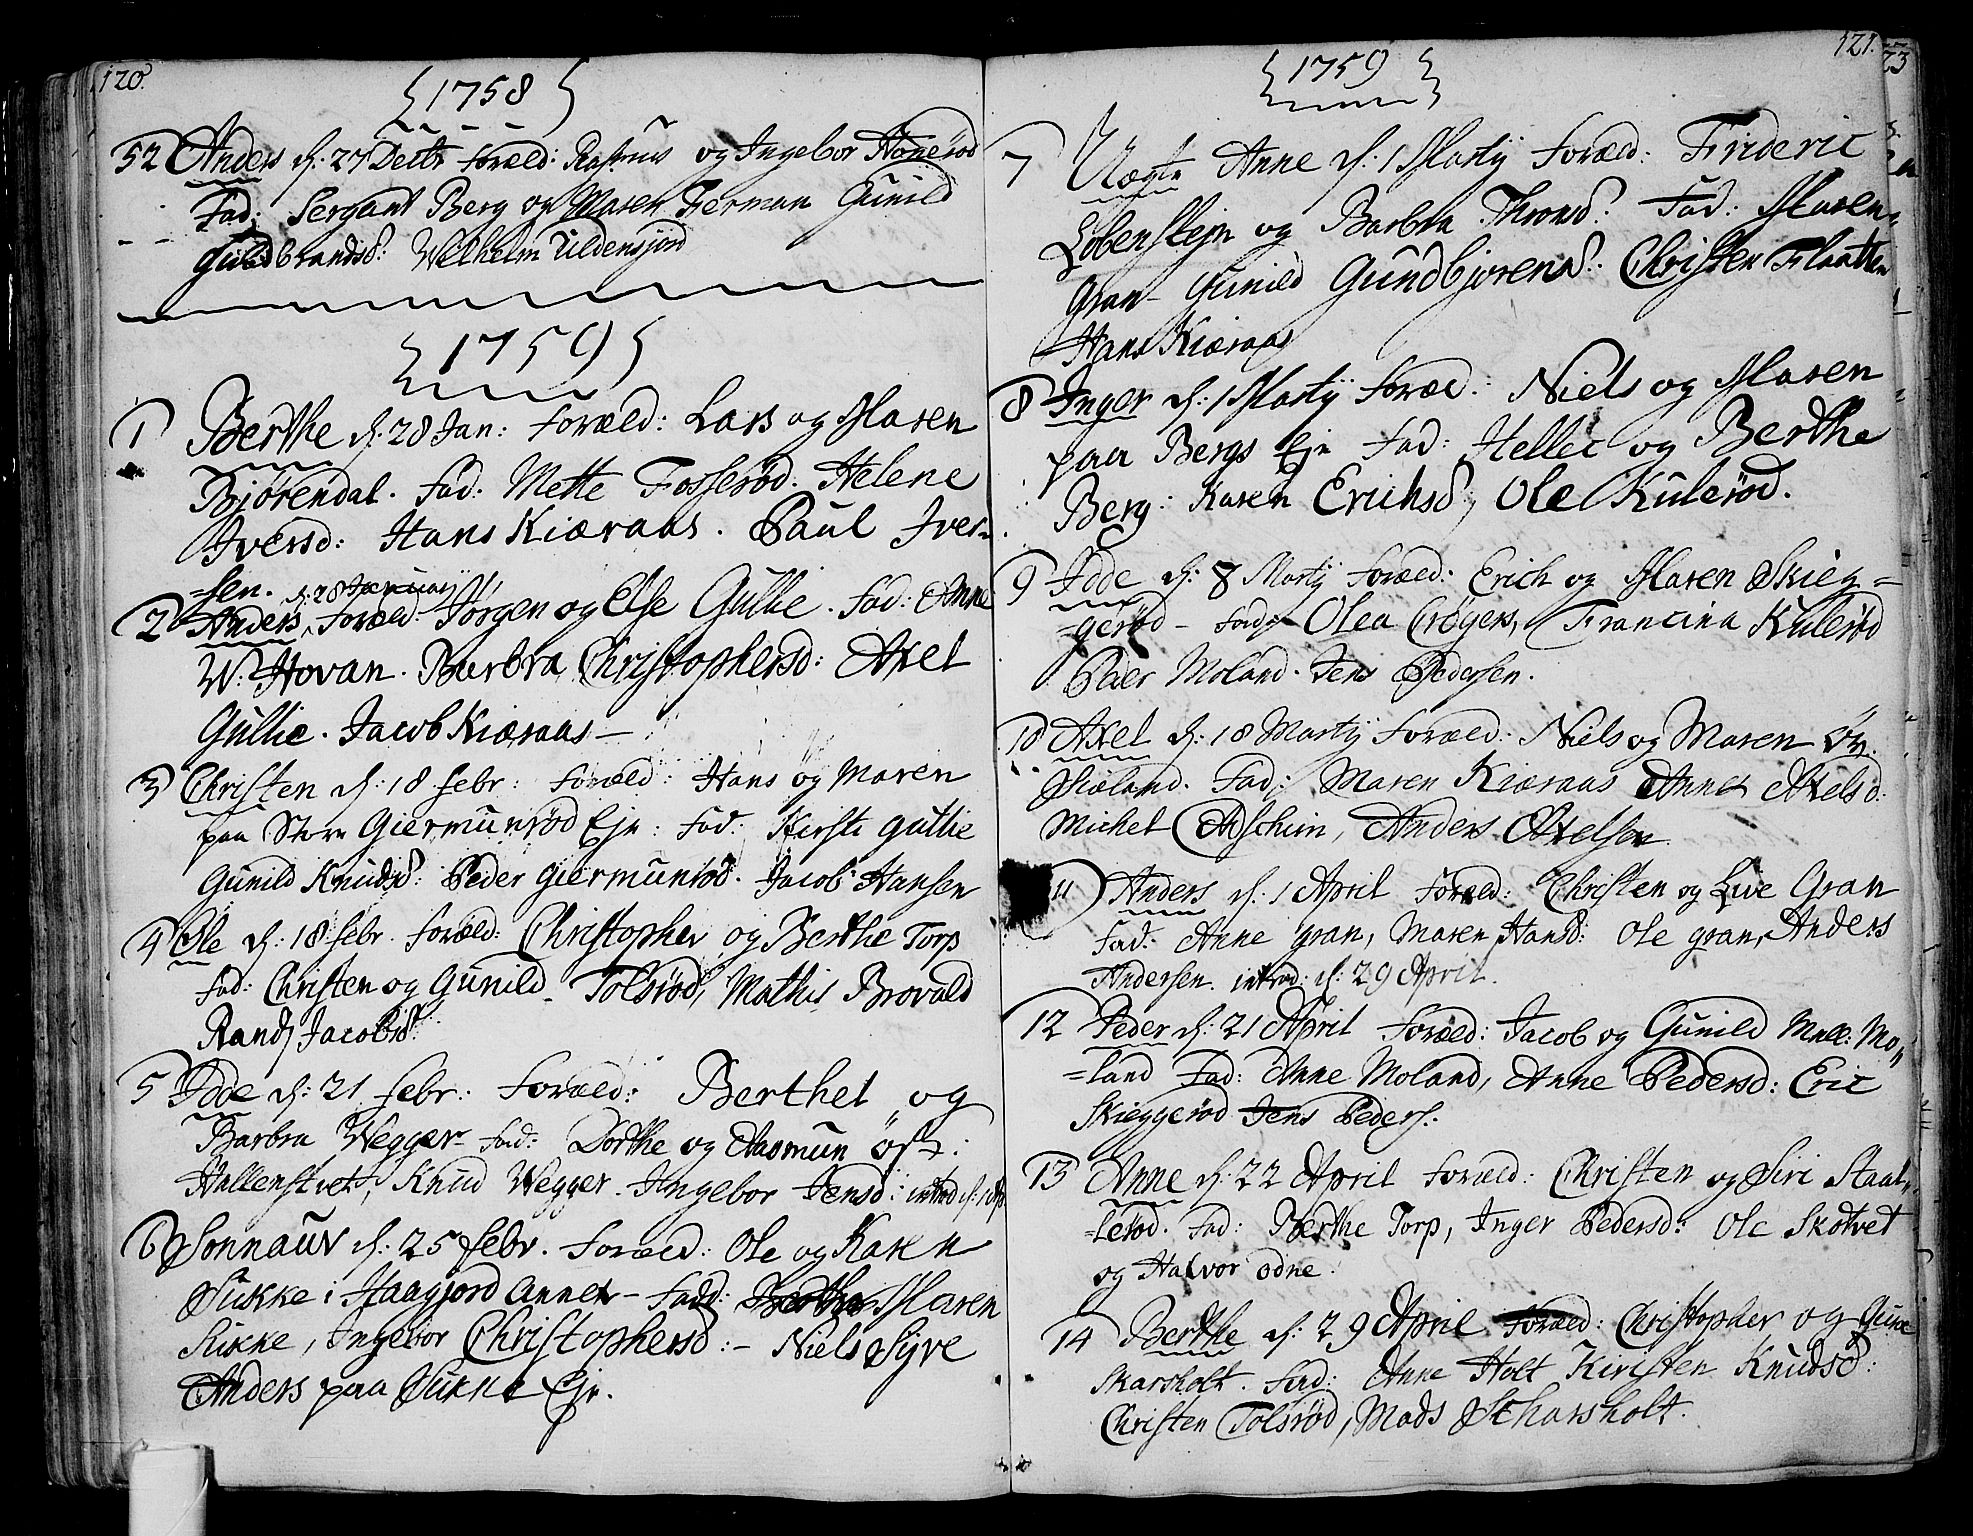 120.
1758
52 Anders d: 27 Decbr foræld: Rasmus og Ingebor Aanerød
Fad: Sergant Berg og Maren Ferman Gunild
Guldbrandsd: Wilhelm Uldensjord
1759
1 Berthe d: 28 Jan: foræld: Lars og Maren
Bjørendal. fad: Mette Fosserød. Helene
Iversd: Hans Kiæraas. Paul Iver-
=sen.
d: 28 Januarij
2 Anders, foræld: Jørgen og Else Gullie. fad: Anne
W: Hovan. Barbra Christophersd: Axel
Gullie. Jacob Kiæraas –
3 Christen d: 18 febr: foræld: Hans og Maren
paa Store Giermunrød Eje: fad: Kirsti Gullie
Gunild Knudsd: Peder Giermunrød. Jacob Hansen
4 Ole d: 18 febr. foræld: Christopher og Berthe Torp
fad: Christen og Gunild Tolsrød, Mathis Brovald
Randj Jacobsd:
5 Idde d: 21 febr: foræld: Berthel og
Barbra Wegger fad: Dorthe og Aasmun øst:
Hallenstvet, Knud Wegger. Ingebor Jensd: introd d: 1 Ap
6 Sonnauv d: 25 febr. foræld: Ole og Karen
Sukke i Haagjord Annex – fadd: Maren
Sukke, Ingebor Christophersd: – Niels Syve
Anders paa Sukke Eje.
121.
1759
7 Uægte Anne d: 1 Martij foræld: Frideric
Lobenstejn og Barbra Thronsd: Fad: Maren
Gran – Gunild Gundbjørensd: Christen Flaatten
Hans Kiæraas
8 Inger d: 1 Martij foræld: Niels og Maren
paa Bergs Eje fad: Hellec og Berthe
Berg: Karen Erichsd, Ole Kulerød.
9 Idde d: 8 Martij foræld: Erich og Maren Skieg=
=gerød – fad: Olea Crøgers, Francina Kulerød
Peder Moland. Jens Pedersen.
10 Axel d: 18 Martij foræld: Niels og Maren øv:
Siæland. Fad: Maren Kiæraas Anne Axelsd:
Michel Aschim, Anders Axelsen
11 Anders d: 1 April foræld: Christen og Live Gran
fad: Anne gran, Maren Hansd: Ole gran, Anders
Andersen. introd: d: 29 April.
12 Peder d: 21 April foræld: Jacob og Gunild Mell: Mo=
=land Fad: Anne Moland, Anne Pedersd: Eric
Skieggerød Jens Peders:
13 Anne d: 22 April foræld: Christen og Siri Staal=
=lerød. fad: Berthe Torp, Inger Pedersd: Ole Skotvet
og Halvor odne.
14 Berthe d: 29 April foræld: Christopher og Gune
Skarsholt. fad: Anne Holt Kirsten Knudsd:
Christen Tolsrød, Mads Scharsholt.